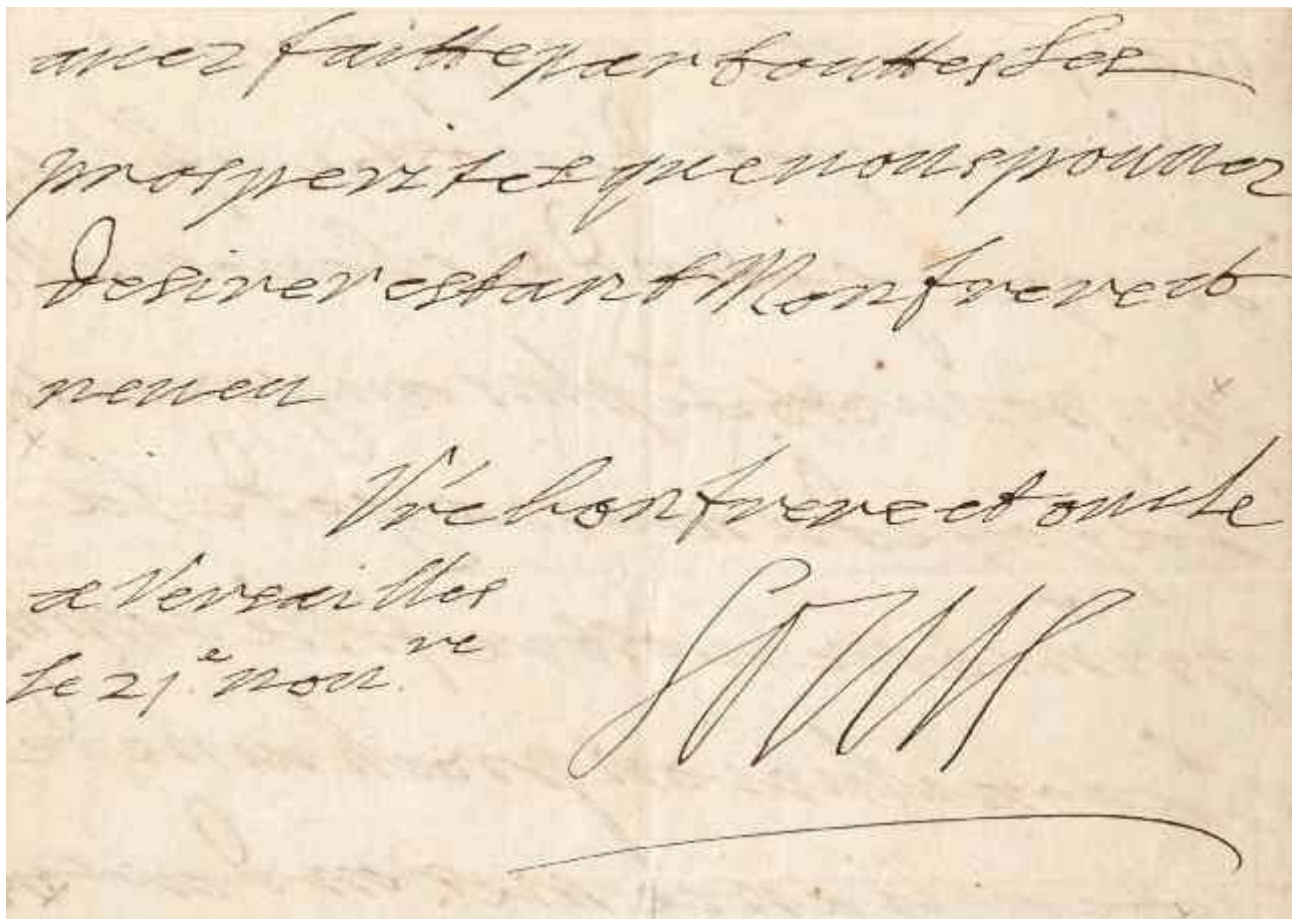 avez faitte par touttes les
prosperites que vous pouvuez
desirer estant Mon frere et
neveu
Vre bon frere et oncle
a Versailles
le 21e nou.re
Louis